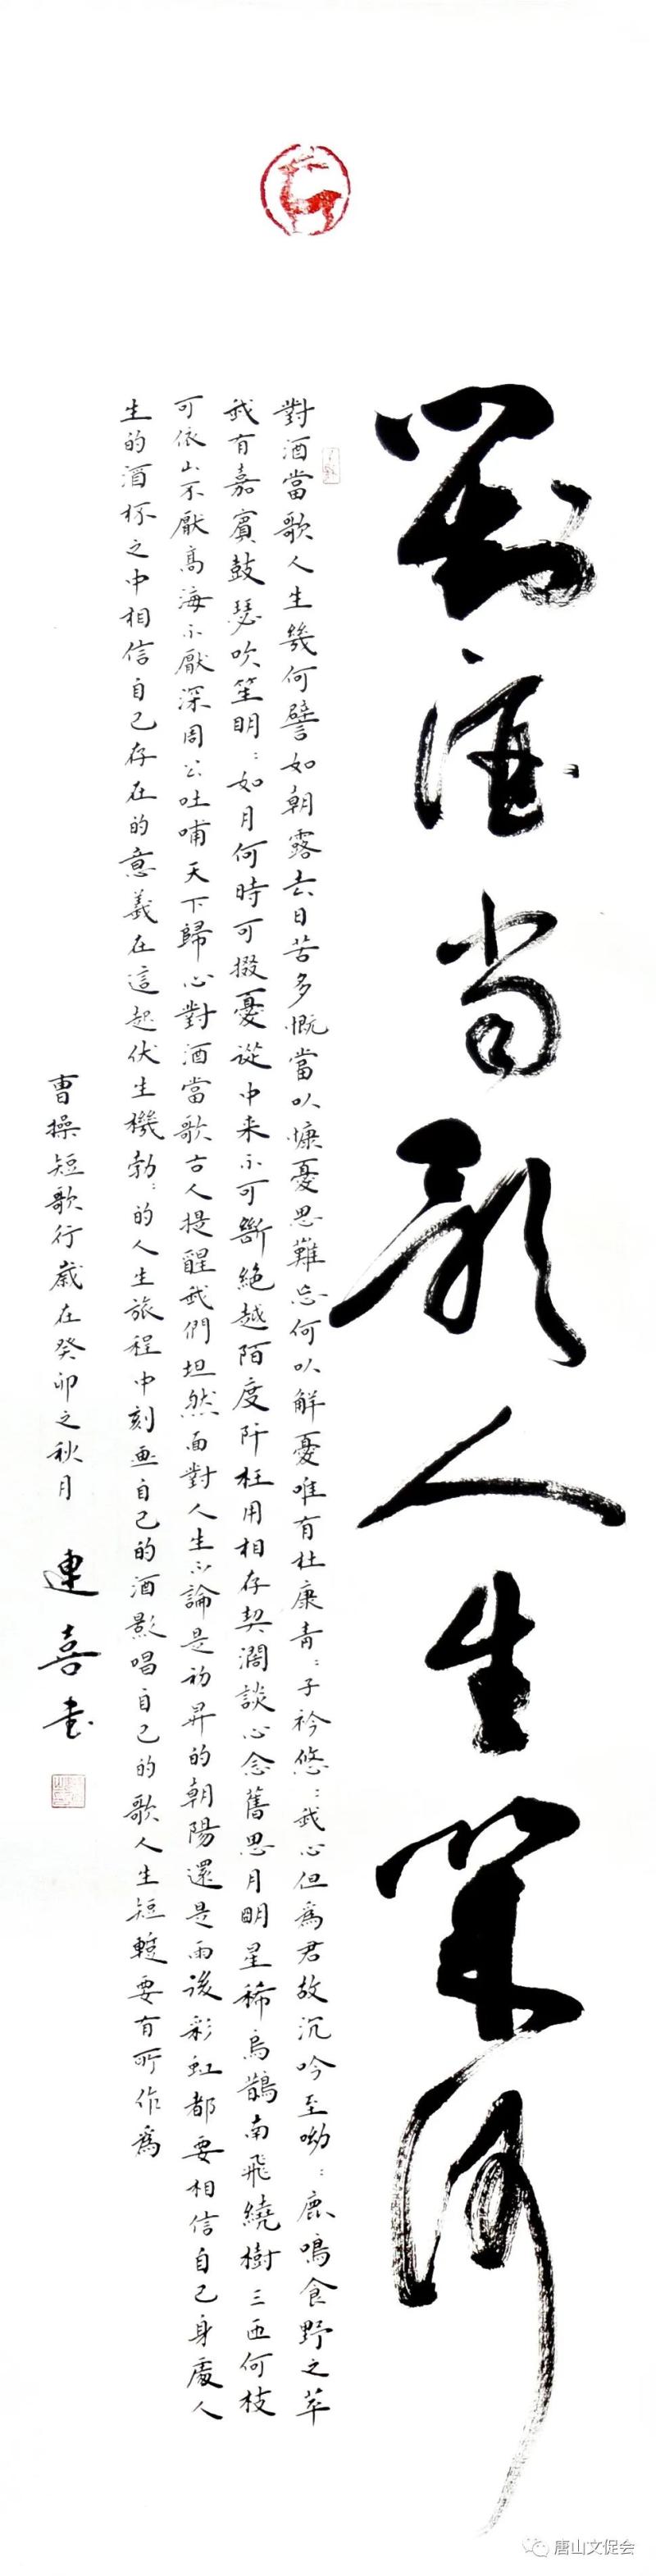 對酒當歌人生幾何
對酒當歌人生幾何譬如朝露去日苦多慨當以慷憂思難忘何以解憂唯有杜康青:子衿悠:我心但為君故沉吟至呦:鹿鳴食野之苹
我有嘉賓鼓瑟吹笙明:如月何時可掇憂從中来不可斷絕越陌度阡枉用相存契濶談心念舊思月明星稀烏鵲南飛繞樹三匝何枝
可依山不厭高海不厭深周公吐哺天下歸心對酒當歌古人提醒我們坦然面對人生不論是初昇的朝陽還是雨後彩虹都要相信自己身處人
生的酒杯之中相信自己存在的意義在這起伏生機勃:的人生旅程中刻画自己的酒影唱自己的歌人生短暫要有所作為
曹操短歌行歲在癸卯之秋月 連喜書
唐山文促会